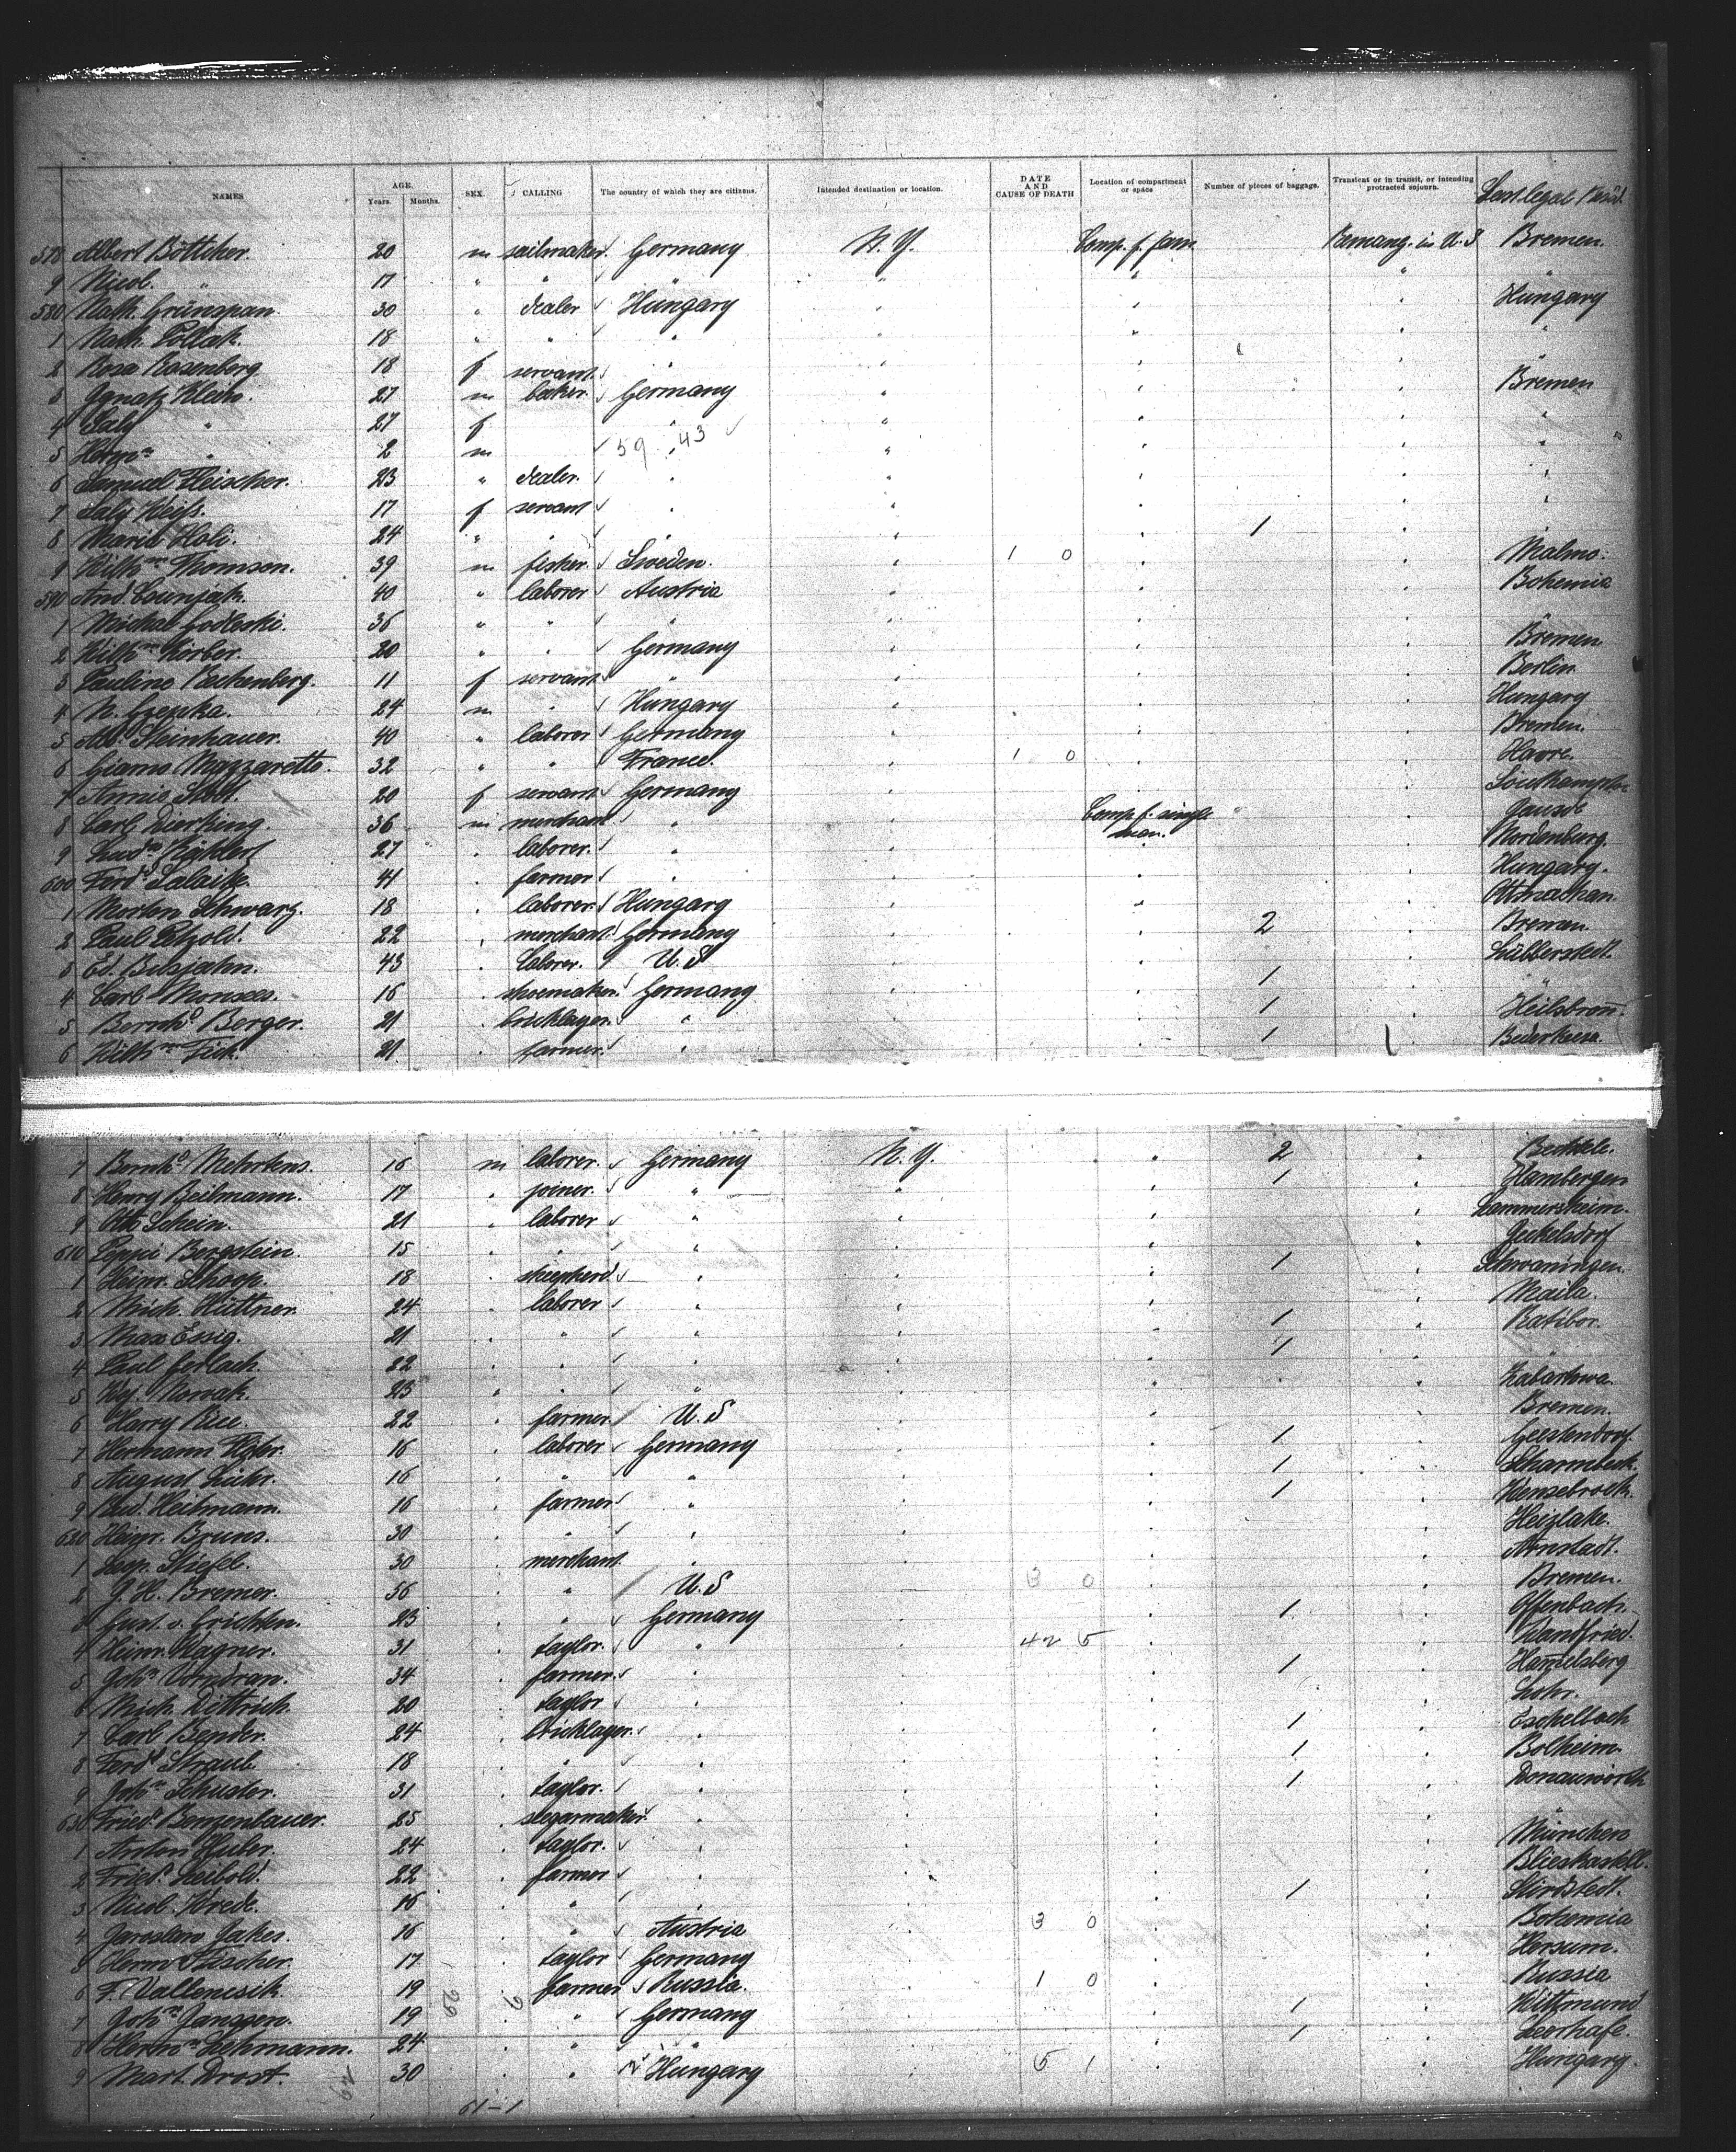 NAMES AGE. Years. Months. SEX. CALLING The country of which they are citizens. Intended destination or location. DATE AND CAUSE OF DEATH Location of compartment or space Number of pieces of baggage. Transient or in transit, or intending protracted sojourn. Last legal Resid.
578 Albert Böttcher. 20 m sailmaker. Germany N.Y. Comp. f. fam. Remang. in U.S Bremen.
9 Nicol. " 17 " " " " " " "
580 Nath. Grünspan. 30 " dealer Hungary " " " Hungary
1 Nath. Pollak. 18 " " " " " " "
2 Rosa Rosenberg 18 f servant. " " " " "
3 Ignatz Klein. 27 m baker. Germany " " " Bremen
4 Saly " 27 f " " " " "
5 Herm " 2 m 59 43 " " " "
6 Samuel Fleischer. 23 " dealer. " " " " "
7 Saly Weiss. 17 f servant " " " " "
8 Maria Holi. 24 " " " " " 1 " "
9 Wilhm Thomsen. 39 m fisher. Sweden. " 1 0 " " Malmo.
590 And. 40 " laborer Austria " " " Bohemia
1 Michal Godleski. 36 " " " " " " "
2 Wilhm Körber. 20 " " Germany " " " Bremen
3 Pauline Reckenberg. 11 f servant " " " " Berlin
4 N. 24 m " Hungary " " " Hungary
5 Steinhauer. 40 " laborer Germany " " " Bremen.
6 Giamo Mazzaretto. 32 " " France. " 1 0 " " Havre.
7 Annie Stoll. 20 f servant Germany " " " Southampton
8 Carl Dierking. 36 m merchant " " Comp. f. single men. "
9 27 " laborer. " " " " Nordenburg.
600 Ferd. Salaike. 41 " farmer " " " " Hungary.
1 Morton Schwarz. 18 " laborer. Hungary " " "
2 Paul Petzold. 22 " merchant. Germany " " 2 " Bremen
3 Ed. Bilsjahn. 43 " laborer. U.S " " " Lübberstedt.
4 Carl Monsees. 16 " shoemaker. Germany " " 1 " "
5 Bernhd Berger. 21 " bricklayer. " " " 1 " Heilsbronn.
6 Wilhm Fick. 21 " farmer. " " " 1 " Bederkesa.
7 Bernhd Mehrtens. 16 m laborer. Germany N.Y. " 2 "
8 Henry Beilmann. 17 " joiner. " " " 1 " Hambergen
9 Otto Schein. 21 " laborer " " " " Lammersheim.
610 Peppi Bergstein. 15 " " " " " " Jeckelsdorf
1 Heinr. Schoop. 18 " shepherd. " " " 1 " Schwaningen.
2 Mich. Hüttner. 24 " laborer " " " " Naila.
3 Max Essig. 21 " " " " " 1 " Ratibor.
4 Paul Gerlach. 22 " " " " " 1 " "
5 Novak. 23 " " " " " "
6 Harry Rice. 22 " farmer. U.S " " " Bremen.
7 Hermann 16 " laborer Germany " " 1 " Geestendorf
8 August Lühr. 16 " " " " " 1 " Scharmbeck.
9 Heitmann. 16 " farmer " " " 1 "
620 Heinr. Bruns. 30 " " " " " " Heiglake.
1 Leop. Stiefel. 30 " merchant " " " " Arnstadt.
2 J. H. Bremer. 56 " " U.S " 3 0 " " Bremen.
3 Gust. v. Erichten. 23 " " Germany " " 1 " Offenbach.
4 Heinr. Wagner. 31 " taylor. " " 42 5 " " Wandfried.
5 Johs Vormdran. 34 " farmer. " " " 1 " Hammelsberg
6 Mich. Dittrich. 20 " taylor " " " " Lohr.
7 Carl Bender. 24 " bricklayer. " " " 1 " Eschelbach
8 Ferd Straub. 18 " " " " " 1 " Bolheim.
9 Johs Schuster. 31 " taylor. " " " 1 " Donauwörth
630 Fried. Benzenbauer. 25 " segarmaker. " " " " "
1 Anton Huber. 24 " taylor. " " " " München
2 Fried. Leibold. 22 " farmer " " " " Blieskastell.
3 Nicol. Wrede. 16 " " " " " 1 "
4 Jaroslaw Jakes. 16 " " Austria " 3 0 " " Bohemia
5 Herm Fischer. 17 " taylor Germany " " " Hersum.
6 F. Vallensik. 19 " farmer Russia. " 1 0 " " Russia
7 Johs Janssen. 19 " " Germany " " 1 " Wittmund
8 Herm Lehmann. 24 " " " " " 1 " Leerhafe.
9 Mart. Drost. 30 " " Hungary " 5 1 " " Hungary.
61-1